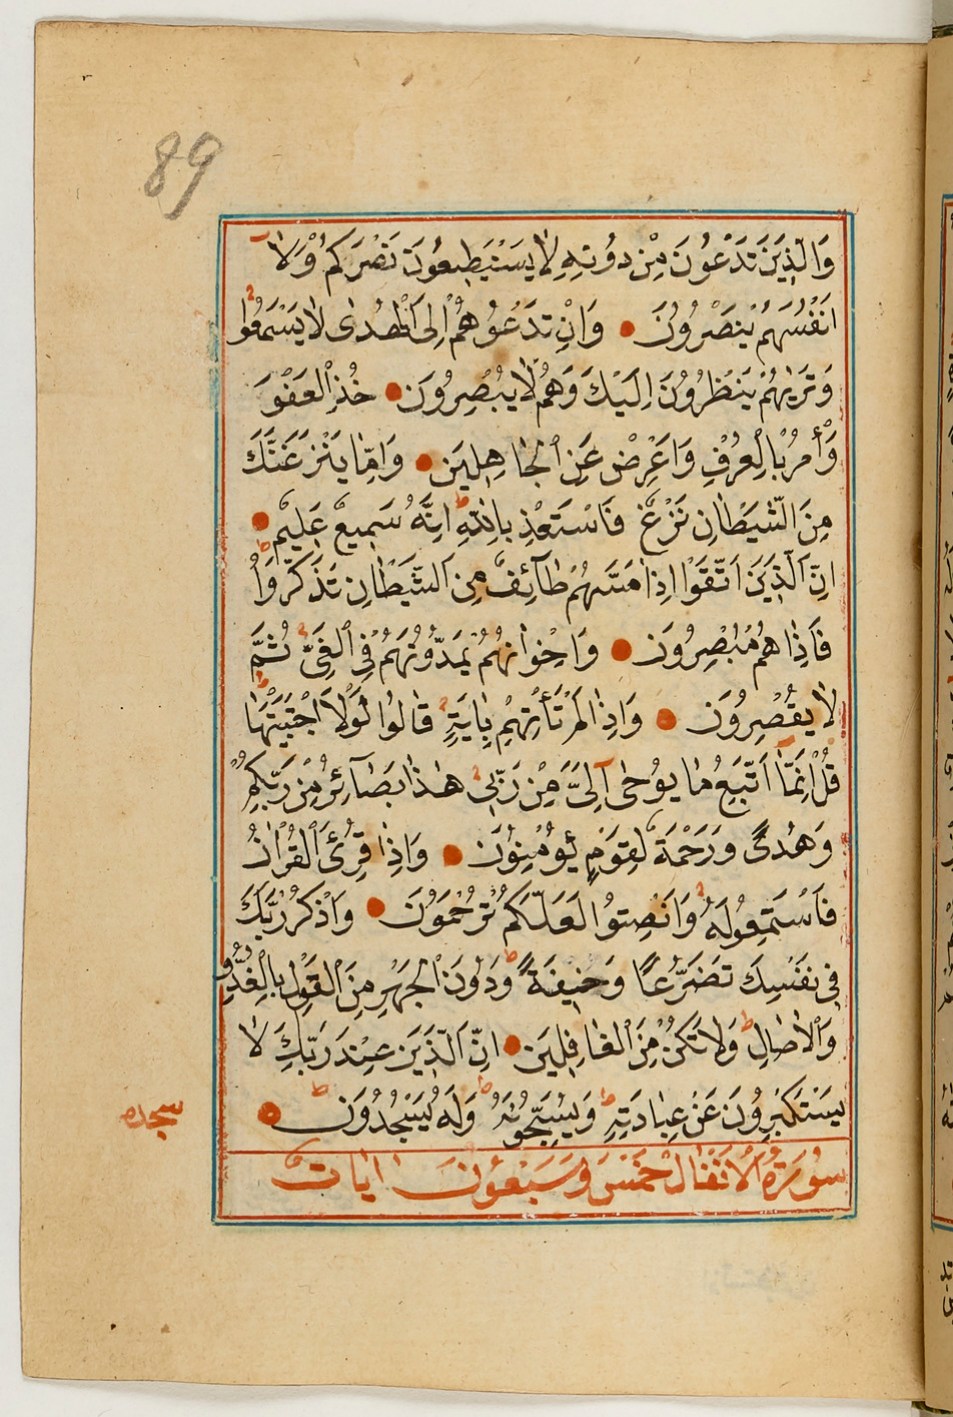 89
وَالَّذِينَ تَدْعُونَ مِنْ دُونِهِ لَا يَسْتَطِيعُونَ نَصْرَكُمْ وَلَا
اَنْفُسَهُمْ يَنْصُرُونَ ● وَاِنْ تَدْعُوهُمْ اِلَى الْهُدٰى لَا يَسْمَعُوا
وَتَرٰيهُمْ يَنْظُرُونَ اِلَيْكَ وَهُمْ لَا يُبْصِرُونَ ● خُذِ الْعَفْوَ
وَأْمُرْ بِالْعُرْفِ وَاَعْرِضْ عَنِ الْجَاهِلِينَ ● وَاِمَّا يَنْزَغَنَّكَ
مِنَ الشَّيْطَانِ نَزْغٌ فَاسْتَعِذْ بِاللّٰهِ ط اِنَّهُ سَمِيعٌ عَلِيمٌ ●
اِنَّ الَّذِينَ اتَّقَوْا اِذَا مَسَّهُمْ طَآئِفٌ مِنَ الشَّيْطَانِ تَذَكَّرُوا
فَاِذَا هُمْ مُبْصِرُونَ ● وَاِخْوَانُهُمْ يَمُدُّونَهُمْ فِي الْغَيِّ ثُمَّ
لَا يُقْصِرُونَ ● وَاِذَا لَمْ تَأْتِهِمْ بِاٰيَةٍ قَالُوا لَوْلَا اجْتَبَيْتَهَا ط
قُلْ اِنَّمَآ اَتَّبِعُ مَا يُوحٰى اِلَىَّ مِنْ رَبِّى هٰذَا بَصَآئِرُ مِنْ رَبِّكُمْ
وَهُدًى وَرَحْمَةٌ لِقَوْمٍ يُؤْمِنُونَ ● وَاِذَا قُرِئَ الْقُرْاٰنُ
فَاسْتَمِعُوا لَهُ وَاَنْصِتُوا لَعَلَّكُمْ تُرْحَمُونَ ● وَاذْكُرْ رَبَّكَ
فِي نَفْسِكَ تَضَرُّعًا وَخِيفَةً وَدُونَ الْجَهْرِ مِنَ الْقَوْلِ بِالْغُدُوِّ
وَالْاٰصَالِ ط وَلَا تَكُنْ مِنَ الْغَافِلِينَ ● اِنَّ الَّذِينَ عِنْدَ رَبِّكَ لَا
يَسْتَكْبِرُونَ عَنْ عِبَادَتِهِ ط وَيُسَبِّحُونَهُ ط وَلَهُ يَسْجُدُونَ ط ●
سجده
سُورَةُ الْاَنْفَالْ خَمْسَ وَسَبْعُونَ اٰيَاتٌ